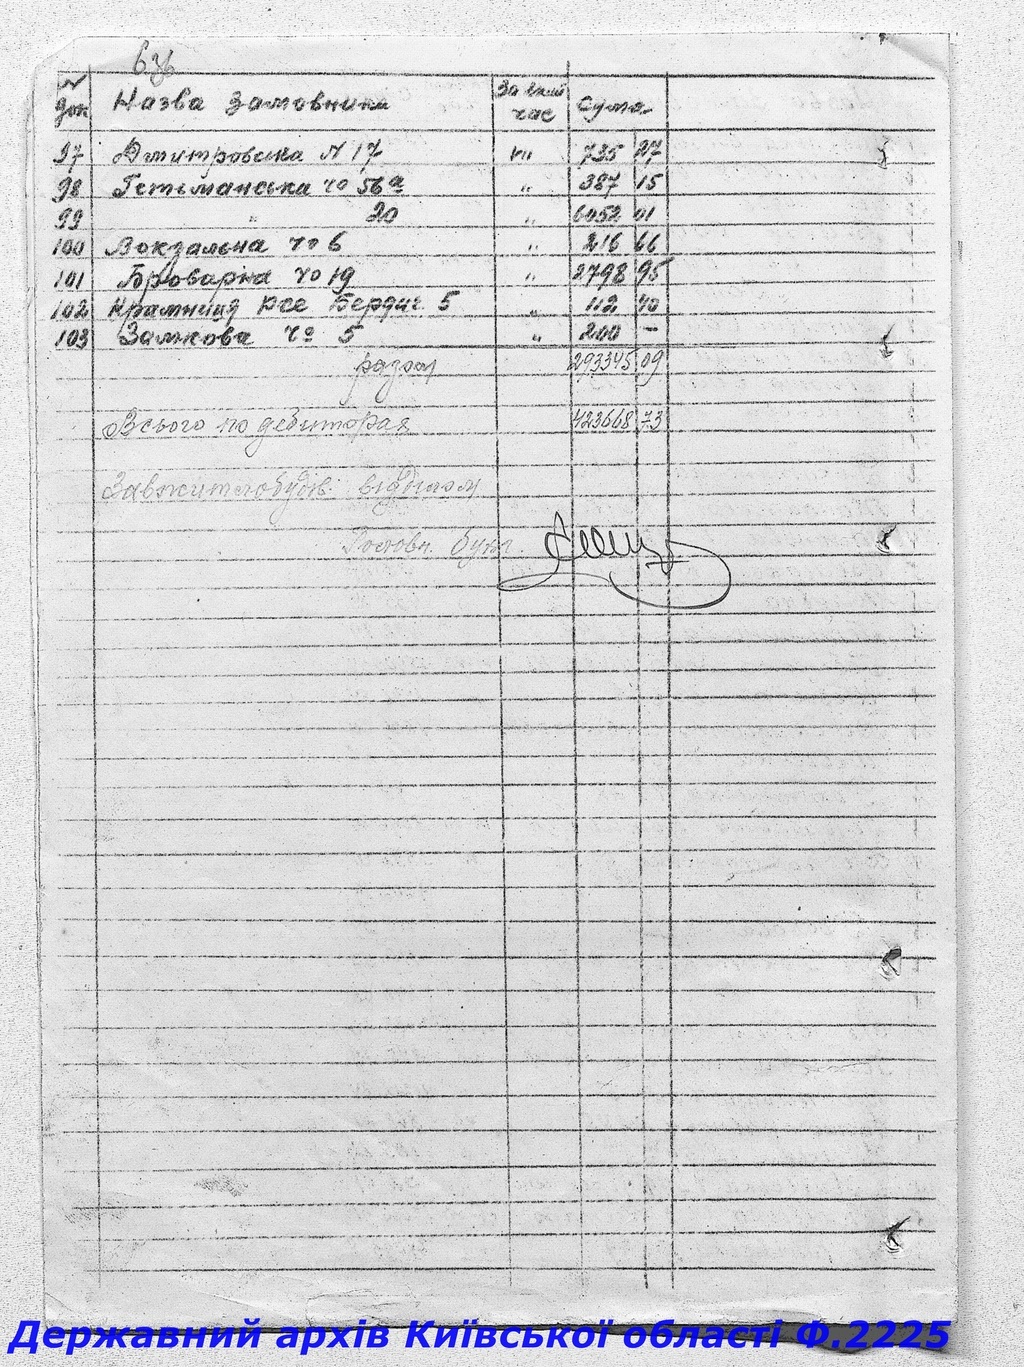 63б
№ док Назва Замовника За який час Сума
97 Дмитровська № 17 " 735 27
98 Гетьманська № 56а " 387 15
99 " 20 " 6052 01
100 Вокзальна № 6 " 216 66
101 Броварна № 19 " 2798 95
102 Крамниця Бердич. 5 " 112 40
103 Замкова № 5 " 200 –
разом 293345 09
Всього по дебиторах 423668 73
Завжитлобудів. відділом
Головн. бухг.
Державний архів Київської області Ф.2225